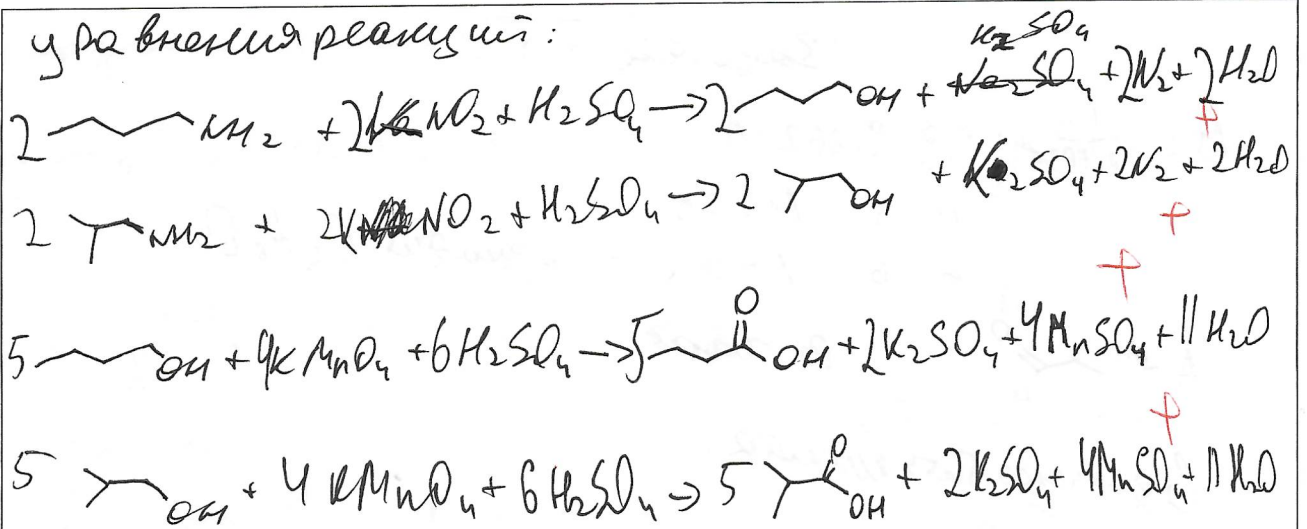 уравнения реакций:
K₂SO₄
2 NH₂ + 2KNO₂ + H₂SO₄ → 2 OH + Na₂SO₄ + 2N₂ + 2H₂O
+
2 NH₂ + 2KNO₂ + H₂SO₄ → 2 OH + K₂SO₄ + 2N₂ + 2H₂O
+
+
5 OH + 4KMnO₄ + 6H₂SO₄ → 5 O OH + 2K₂SO₄ + 4MnSO₄ + 11H₂O
+
5 OH + 4KMnO₄ + 6H₂SO₄ → 5 O OH + 2K₂SO₄ + 4MnSO₄ + 11H₂O